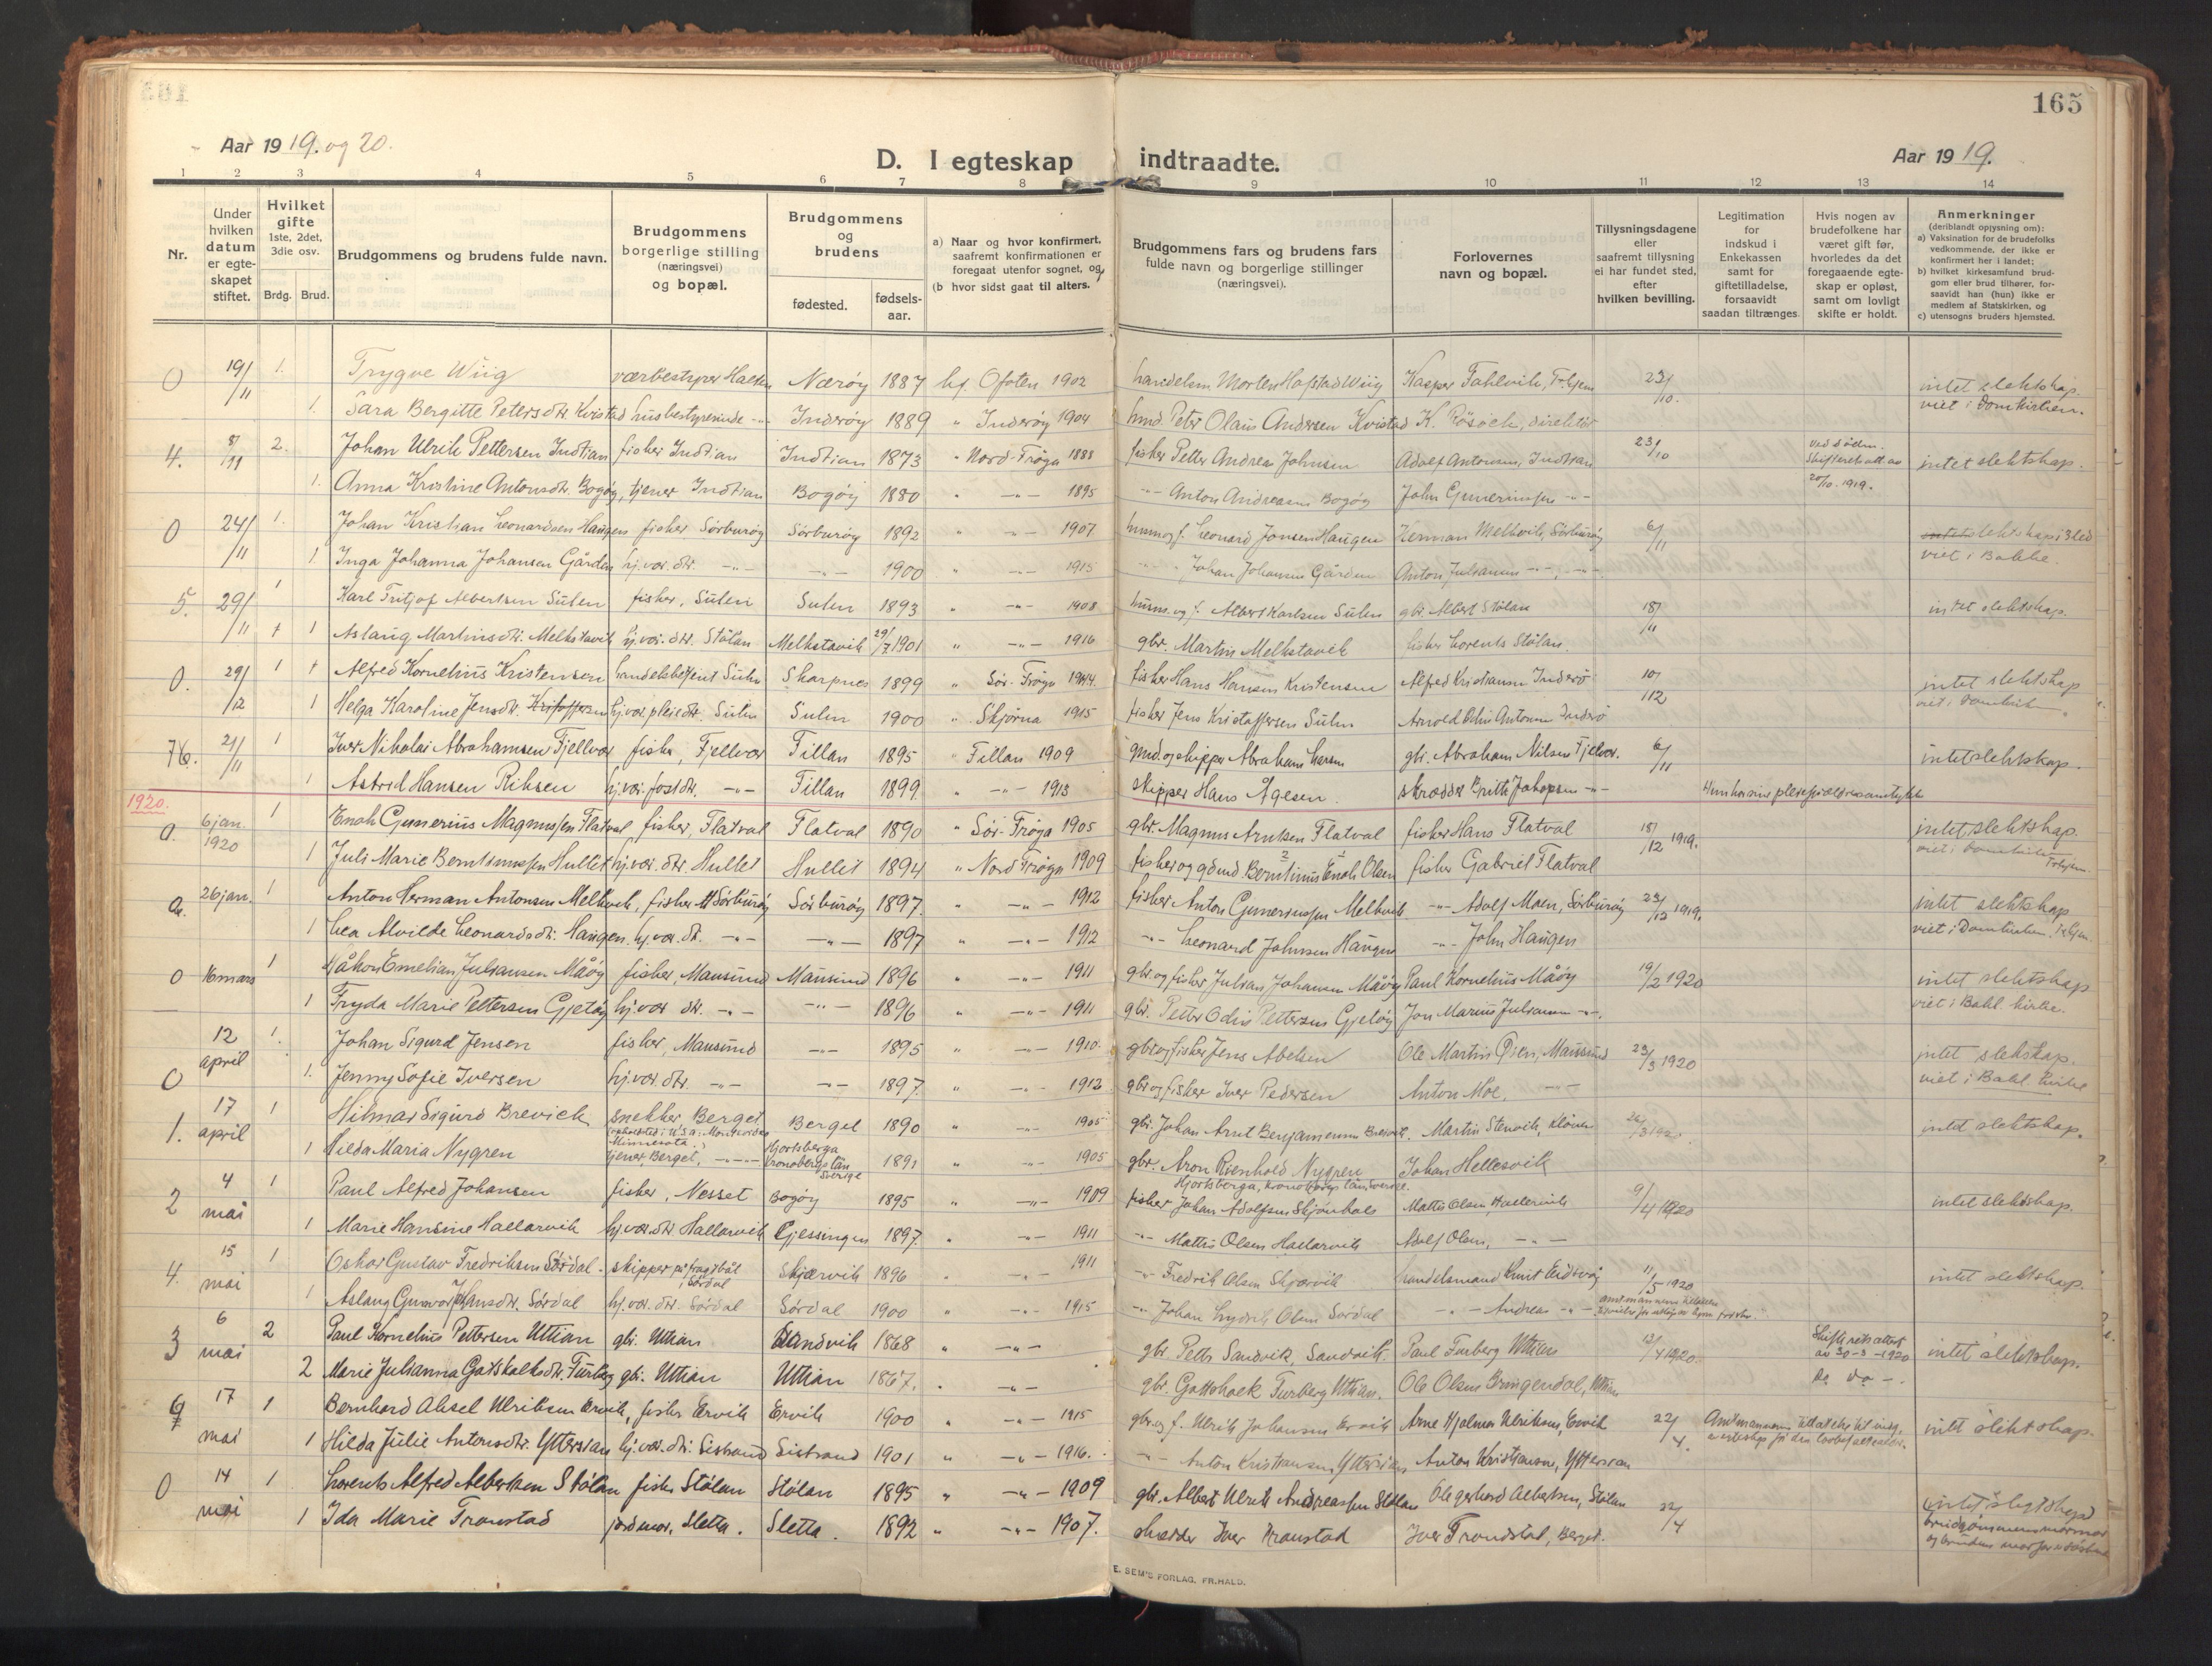 165
Aar 1919. og 20.
D. I egteskap indtraadte.
Aar 1919.
1 2 3 4 5 6 7 8 9 10 11 12 13 14
Nr.
Under hvilken datum er egte-skapet stiftet.
Hvilket gifte 1ste, 2det, 3die osv.
Brdg. Brud.
Brudgommens og brudens fulde navn.
Brudgommens borgerlige stilling (næringsvei) og bopæl.
Brudgommens og brudens
fødested. fødsels-aar.
a) Naar og hvor konfirmert, saafremt konfirmationen er foregaat utenfor sognet, og
(b hvor sidst gaat til alters.
Brudgommens fars og brudens fars fulde navn og borgerlige stillinger (næringsvei).
Forlovernes navn og bopæl.
Tillysningsdagene eller saafremt tillysning ei har fundet sted, efter hvilken bevilling.
Legitimation for indskud i Enkekassen samt for giftetilladelse, forsaavidt saadan tiltrænges.
Hvis nogen av brudefolkene har været gift før, hvorledes da det foregaaende egte-skap er opløst, samt om lovligt skifte er holdt.
Anmerkninger (deriblandt opjysning om):
a) Vaksination for de brudefolks vedkommende, der ikke er konfirmert her i landet;
b) hvilket kirkesamfund brud-gom eller brud tilhører, for-saavidt han (hun) ikke er medlem af Statskirken, og
c) utensogns bruders hjemsted.
0 19/11 1. Trygve Wiig værbestyrer Halten Nærøy 1887 kf. Ofoten 1902 handelsm Morten Hofstad Wiig Kasper Fahlvik, Tr.hjem 23/10. intet slektskap. viet i Domkirken.
1. Sara Bergitte Petersdtr. Kvistad husbestyrerinde -"- Inderøy 1889 " Inderøy 1904 Peter Olaus Andersen Kvistad K. direktør
4. 8/11 2. Johan Ulrik Pettersen Indtian fisker Indtian Indtian 1873 " Nord-Frøya 1888 fisker Petter Andreas Johnsen Adolf Antonsen, Indtian 23/10 ved døden. Skifteretsatt. av 20/10. 1919. intet slektskap.
1. Anna Kristine Antonsdtr. Bogøy, tjener Indtian Bogøy 1880 " -"- 1895 -"- Anton Andreasen Bogøy John Gunerius­sen -"-
0 24/11 1. Johan Kristian Leonardsen Haugen fisker Sørburøy Sørburøy 1892 " -"- 1907 Leonard Jonsen Haugen Herman Melkvik, Sørburøy 6/11 slektskap i 3 led viet i Bakke.
1 Inga Johanna Johansen Gården hj.vær. dtr. -"- -"- 1900 " -"- 1915 Johan Johansen Gården Anton Juliansen -"-
5. 29/11 1 Karl Fritjof Albertsen Sulen fisker, Sulen Sulen 1893 " -"- 1908 Albert Karlsen Sulen gbr. Albert Stølan 18/11 intet slektskap.
1 Aslaug Martinsdtr. Melkstavik hj.vær. dtr. Stølan Melkstavik 29/7 1901 " -"- 1916 gbr. Martin Melkstavik fisker Lorents Stølan.
0. 29/12 1 Alfred Kornelius Kristensen handelsbetjent Sulen Skarpnes 1899 " Sør-Frøya 1914. fisker Hans Hansen Kristensen Alfred Kristiansen Inderø 10/12 intet slektskap viet i Domkirk
1 Helga Karoline Jensdtr. Kristoffersen hj.vær. pleiedtr. Sulen Sulen 1900 " Stjørna 1915 fisker Jens Kristoffersen Sulen Arnold Odin Antonsen Inderø
76. 21/11 1 Iver Nikolai Abrahamsen Fjellvær fisker, Fjellvær Fillan 1895 " Fillan 1909 gmd. og skipper Abraham Larsen gbr. Abraham Nilsen Fjelvær. 6/11 intet slektskap.
1 Astrid Hansen Riksen hj.vær. fostdtr. -"- Fillan 1899. " -"- 1913 skipper Hans Ågesen. skrædder Johansen -"-
1920.
0. 6 jan. 1920 1 Enok Gunerius Magnussen Flatval, fisker, Flatval Flatval 1890 " Sør-Frøya 1905 gbr. Magnus Arntsen Flatval fisker Hans Flatval 18/12 1919. intet slektskap. viet i Domkirken Tr.hjem.
1 Juli Marie Berntinussen Hullet hj.vær. dtr. Hullet Hullet 1894 " Nord Frøya 1909 fisker og gdmd Berntinus Enok Olsen fisker Gabriel Flatval
0. 26 jan. 1 Anton Herman Antonsen Melkvik, fisker Sørburøy Sørburøy 1897. " -"- 1912 fisker Anton Guneriussen Melkvik -"- Adolf Moen, Sørburøy 23/12 1919. intet slektskap viet i Domkirken. Tr.hjem.
1 Lea Alvilde Leonardsdtr. Haugen. hj.vær. dt. -"- -"- 1897 " -"- 1912 -"- Leonard Johnsen Haugen -"- John Haugen
0 16 mars 1 Håkon Emelian Juliansen Måøy fisker, Mausund Mausund 1896 " -"- 1911 gbr. og fisker Julian Johansen Måøy Paul Kornelius Måøy 19/2 1920 intet slektskap viet i Bakl. kirke.
1 Fryda Marie Pettersen Gjetøy hj.vær dtr. -"- -"- 1896 " -"- 1911 gbr. Petter Odin Pettersen Gjetøy Jon Marius Juliansen -"-
0 12 april 1. Johan Sigurd Jensen fisker, Mausund -"- 1895 " -"- 1910. gbr og fisker Jens Abelsen Ole Martin Øien, Mausund 23/3 1920 intet slektskap. viet i Bakl. kirke
1. Jenny Sofie Iversen hj.vær. dtr. -"- -"- 1897. " -"- 1912. gbr og fisker Iver Pedersen Anton Moe, -"-
1. 17 april 1 Hilmar Sigurd Brevick snekker Berget (opholdsted i U.S.a. Montevideo Minnesota.) Berget 1890 " -"- 1905 gbr. Johan Arnt Benjaminsen Brevik. Martin Stenvik, Kløven 26/3 1920. intet slektskap.
1 Hilda Maria Nygren tjener, Berget, -"- Hjortsberga Kronobergs län Sverige 1891 " -"- 1905 gbr. Aron Rienhold Nygren Hjortsberga, Kronobergs län Sverige. Johan Hellesvik
2 4 mai 1 Paul Alfred Johansen fisker, Nesset Bogøy 1895 " -"- 1909 fisker Johan Adolfsen Skjønhals Mattis Olsen, Hallarvik 9/4 1920 intet slektskap.
1 Marie Hansine Hallarvik hj.vær. dtr. Hallarvik Gjessingen 1897. " -"- 1911 -"- Mattis Olsen Hallarvik Adolf Olsen, -"-
4. 15 mai 1 Oskar Gustav Fredriksen Sørdal. skipper på fragtbåt, Sørdal Skjærvik 1896 " -"- 1911 -"- Fredrik Olsen Skjærvik handelsmand Knut Eidsvåg 11/5 1920 intet slektskap.
1 Aslaug Gunvor Johansdtr. Sørdal hj.vær. dtr. Sørdal Sørdal 1900 " -"- 1915 -"- Johan Olsen Sørdal -"- Andreas -"-
3 6 mai 2 Paul Kornelius Pettersen Uttian gbr. Uttian Sandvik 1868 " -"- gbr. Petter Sandvik, Sandvik. Paul Furberg Uttian 13/4 1920. Skifteretsattest av 30-3-1920 intet slektskap.
2 Marie Julianna Gotskalksdtr. Furberg gbr. Uttian Uttian 1867. " -"- gbr. Gottskalk Furberg Uttian. Ole Olsen Bringendal, Uttian Do Do -.
6 17 mai 1 Bernhard Aksel Ulriksen Ervik, fisker Ervik Ervik 1900 " -"- 1915 gbr. og f. Ulrik Johansen Ervik Arne Hjalmar Ulriksen, Ervik 22/4. Amtmannens tilladelse til intet slektskap.
1 Hilda Julie Antonsdtr. Yttersian hj.vær. dtr. Sistrand Sistrand 1901 " -"- 1916. -"- Anton Kristiansen Yttersian Anton Kristiansen, Yttersian
0 14 mai 1 Lorents Alfred Albertsen Stølan fisker Stølan Stølan 1895 " -"- 1909 gbr. Albert Ulrik Andreassen Stølan Ole Gerhard Albertsen, Stølan 22/4 intet slegtskap brudgommens mormor og brudens morfar
1 Ida Marie Tronstad jordmor, Sletta. Sletta. 1892 " -"- 1907. skrædder Iver Tronstad Iver Trondstad, Berget.
E. SEM'S FORLAG. FR.HALD.